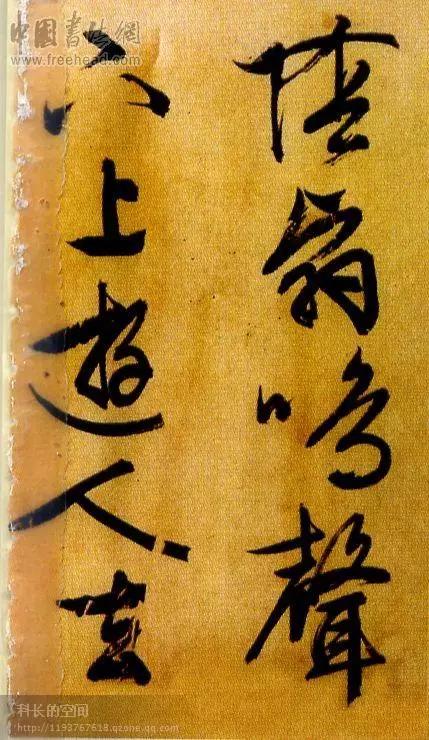 中國書法網
www.freehead.com
陰翳鳴聲
下上遊人去
科长的空间
http://1193767618.qzone.qq.com